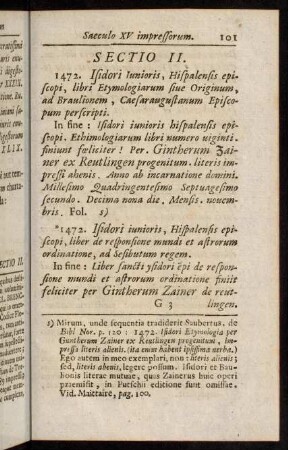 Saeculo XV impressorum. 101
SECTIO II.
1472. Isidori Iunioris, Hispalensis epi-
scopi, libri Etymologiarum siue Originum,
ad Braulionem, Caesaraugustanum Episco-
pum perscripti.
In fine: Isidori iunioris hispalensis epi-
scopi. Ethimologiarum libri numero uiginti.
finiunt fœliciter! Per. Gintherum Zai-
ner ex Reutlingen progenitum. literis im-
pressi ahenis. Anno ab incarnatione domini.
Millesimo Quadringentesimo Septuagesimo
secundo. Decima nona die. Mensis. nouem-
bris. Fol. s)
*1472. Isidori iunioris, Hispalensis epi-
scopi, liber de responsione mundi et astrorum
ordinatione, ad Sesibutum regem.
In fine: Liber sancti ysidori ēpi de respon-
sione mundi et astrorum ordinatione finiit
feliciter per Gintherum Zainer de reut-
G 3 lingen.
s) Mirum, unde sequentia tradiderit Saubertus. de
Bibl Nor. p. 120: 1472. Isidori Etymologia per
Guntherum Zainer ex Reutlingen progenitum, im-
pressa literis alienis. (ita enim habent ipsissima uerba.)
Ego autem in meo exemplari, non: literis alienis;
sed, literis abenis, legere possum. Isidori et Bau-
lionis literae mutuae, quas Zainerus huic operi
praemisit, in Putschii editione sunt omissae.
Vid. Maittaire, pag. 100.